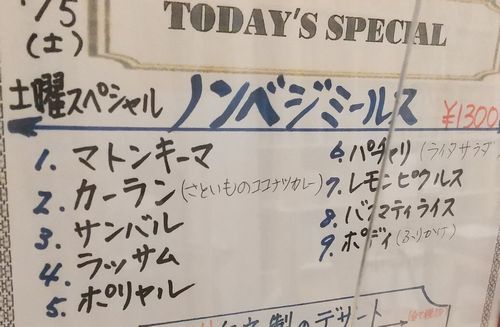 /5
(土)
TODAY'S SPECIAL
土曜スペシャル ノンベジミールス ¥1300
1. マトンキーマ
2. カーラン(さといものココナツカレー)
3. サンバル
4. ラッサム
5. ポリヤル
6. パチャリ(ライタサラダ)
7. レモンピクルス
8. バスマティライス
9. ポディ(ふりかけ)
製のデザート